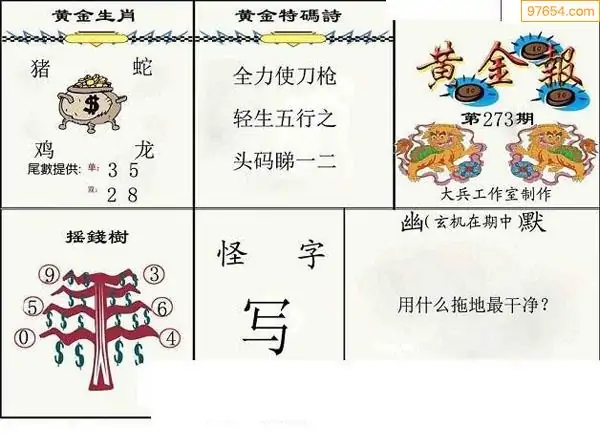 97654.com
黄金生肖
猪 蛇
$
鸡 龙
尾數提供: 单: 3 5
双: 2 8
黄金特碼詩
全力使刀枪
轻生五行之
头码睇一二
黄金報
第273期
大兵工作室制作
摇錢樹
9 3
5 6
0 4
$ $ $ $ $ $ $ $
怪字
写
幽(玄机在期中)默
用什么拖地最干净?